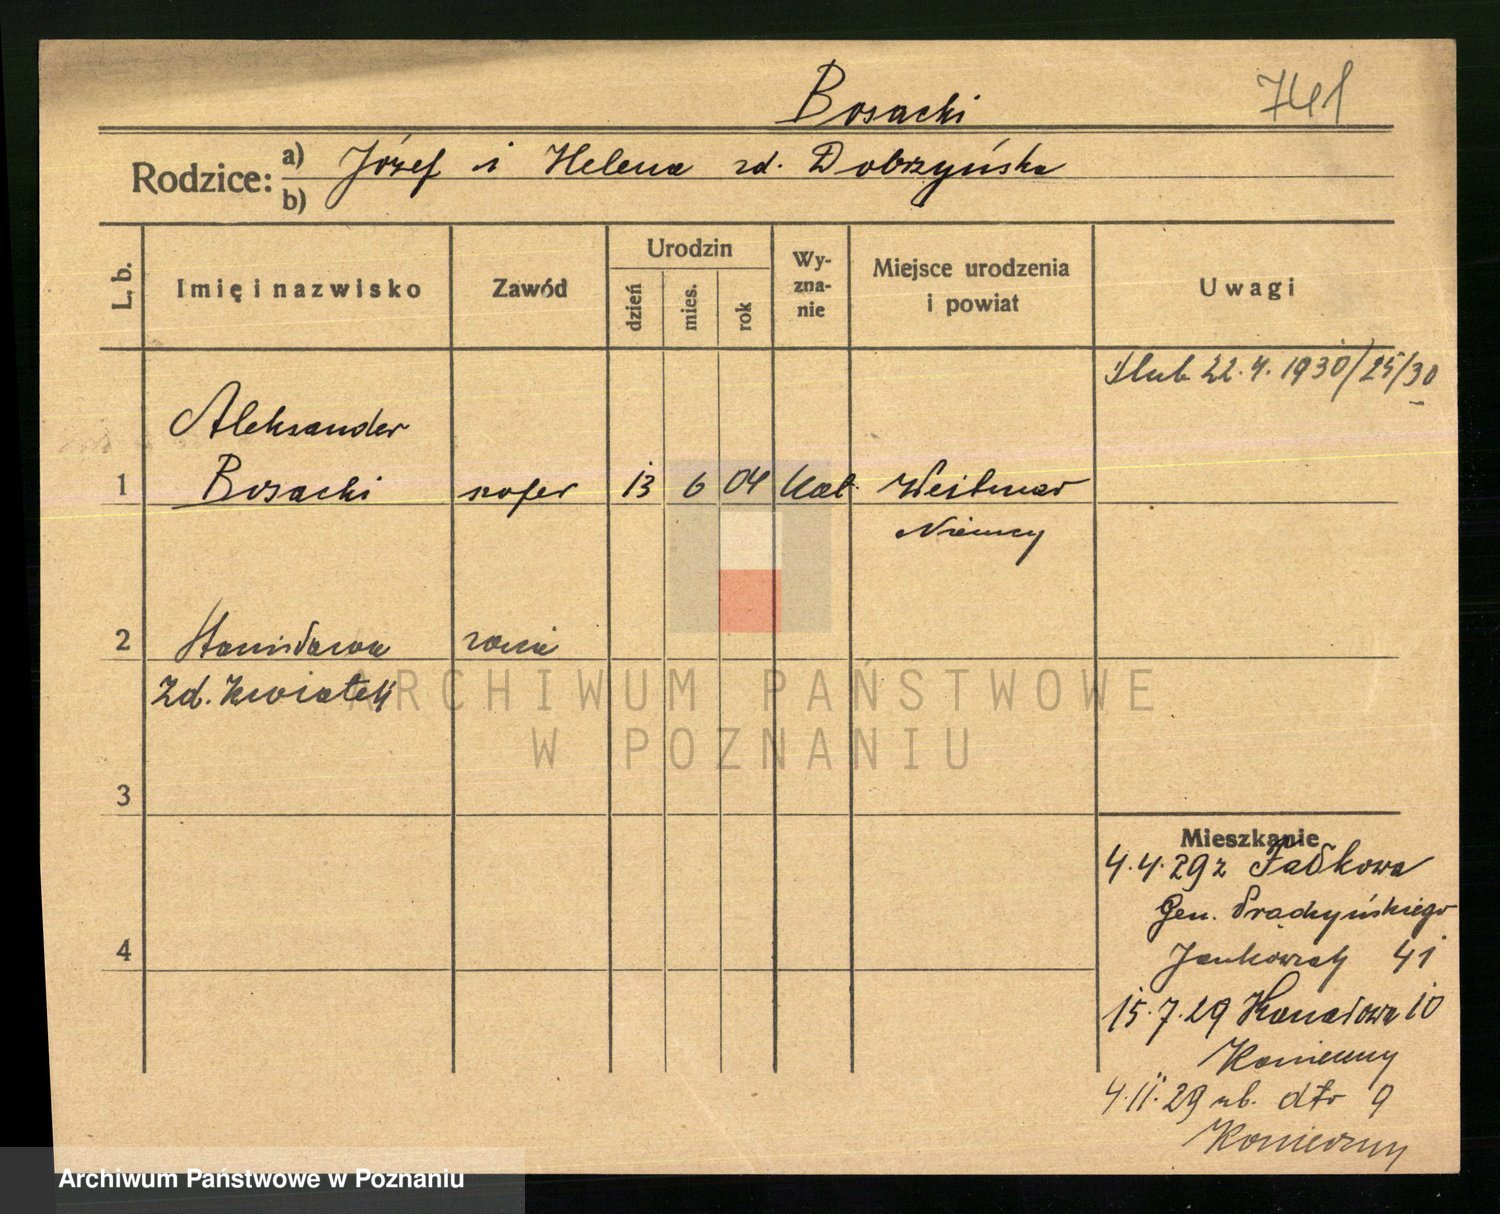 Bosacki
741
Rodzice: a) Józef i Helena zd. Dobrzyńska
b)
L. b.
Imię i nazwisko
Zawód
Urodzin
dzień
mies.
rok
Wy-
zna-
nie
Miejsce urodzenia
i powiat
Uwagi
Ślub 22.4.1930/25/30
Aleksander
1 Bosacki szofer 13 6 04 kat. Weitmar
Niemcy
2 Stanisława żona
zd. Kwiatek
ARCHIWUM PAŃSTWOWE
W POZNANIU
3
Mieszkanie
4.4.29 z
Gen. Prądzyńskiego
4
41
15.7.29 Kanałowa 10
Konieczny
4.11.29 dtto 9
Konieczny
Archiwum Państwowe w Poznaniu